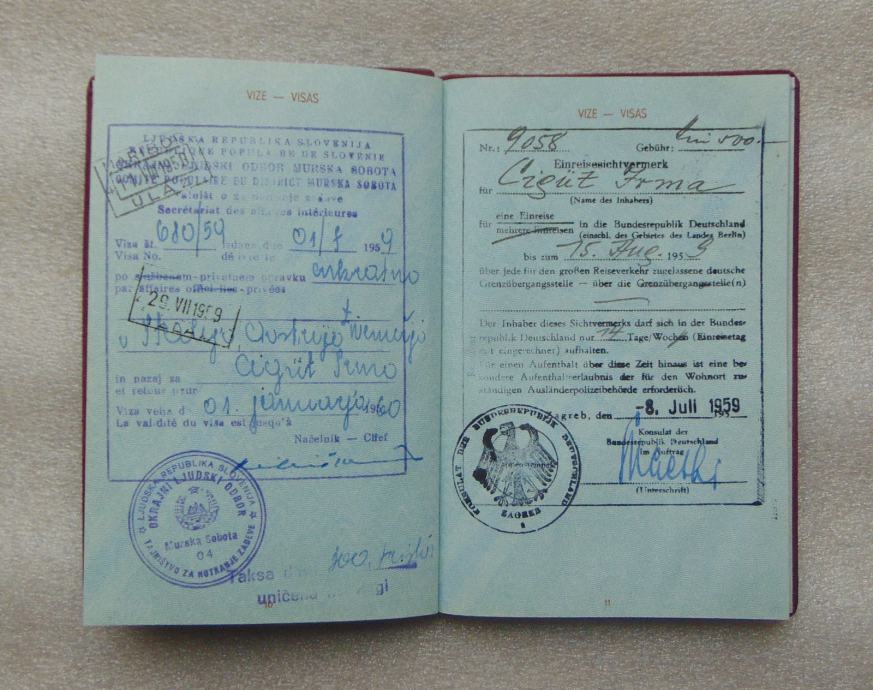 VIZE — VISAS
LJUDSKA REPUBLIKA SLOVENIJA
POPULAIRE DE SLOVENIE
LJUDSKI ODBOR MURSKA SOBOTA
COMITE POPULAIRE DU DISTRICT MURSKA SOBOTA
Secrétariat des affaires intérieures
Viza št. 680/59 01/8 1959
Visa No.
po službenem-privatnem opravku enkratno
par affaires officielles-privées
29. VII 1959
v Italijo, Avstrijo + Nemčijo
Cigüt Irma
in nazaj za
et retour pour
Viza velja do 01. januarja 1960
La validité du visa est jusqu'à
Načelnik — Chef
LJUDSKA REPUBLIKA SLOVENIJA
OKRAJNI LJUDSKI ODBOR
Murska Sobota
04
TAJNIŠTVO ZA NOTRANJE ZADEVE
Taksa din 400,
uničena
10
VIZE — VISAS
Nr.: 9058 Gebühr: 500.-
Einreisesichtvermerk
für Cigüt Irma
(Name des Inhabers)
für eine Einreise
mehrere Einreisen in die Bundesrepublik Deutschland
(einschl. des Gebietes des Landes Berlin)
bis zum 15. Aug. 1959
über jede für den großen Reiseverkehr zugelassene deutsche
Grenzübergangsstelle — über die Grenzübergangsstelle(n)
Der Inhaber dieses Sichtvermerks darf sich in der Bundes-
republik Deutschland nur 14 Tage/Wochen (Einreisetag
mit eingerechnet) aufhalten.
Für einen Aufenthalt über diese Zeit hinaus ist eine be-
sondere Aufenthaltserlaubnis der für den Wohnort zu-
ständigen Ausländerpolizeibehörde erforderlich.
Zagreb, den -8. Juli 1959
Konsulat der
Bundesrepublik Deutschland
im Auftrag
(Unterschrift)
KONSULAT DER BUNDESREPUBLIK DEUTSCHLAND
ZAGREB
11